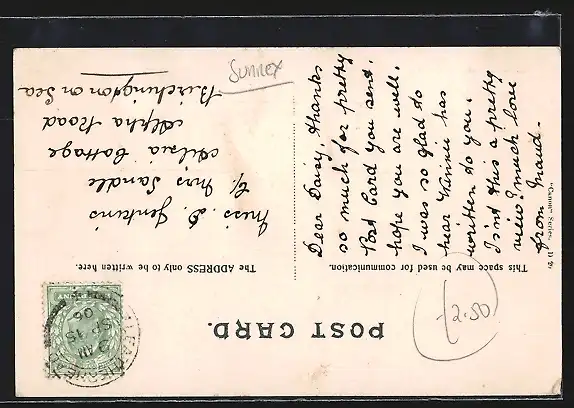 POST CARD.
This space may be used for communication.
The ADDRESS only to be written here.
Dear Daisy, thanks
so much for pretty
Post Card you sent.
hope you are well.
I was so glad to
hear Winnie has
written to you.
Isn't this a pretty
view? much love
from Maud.
Miss. D. Jenkins
c/o Mrs Sandle
Ailsia Cottage
Alpha Road
Birchington on Sea
Sussex
2.50
SP 15
06